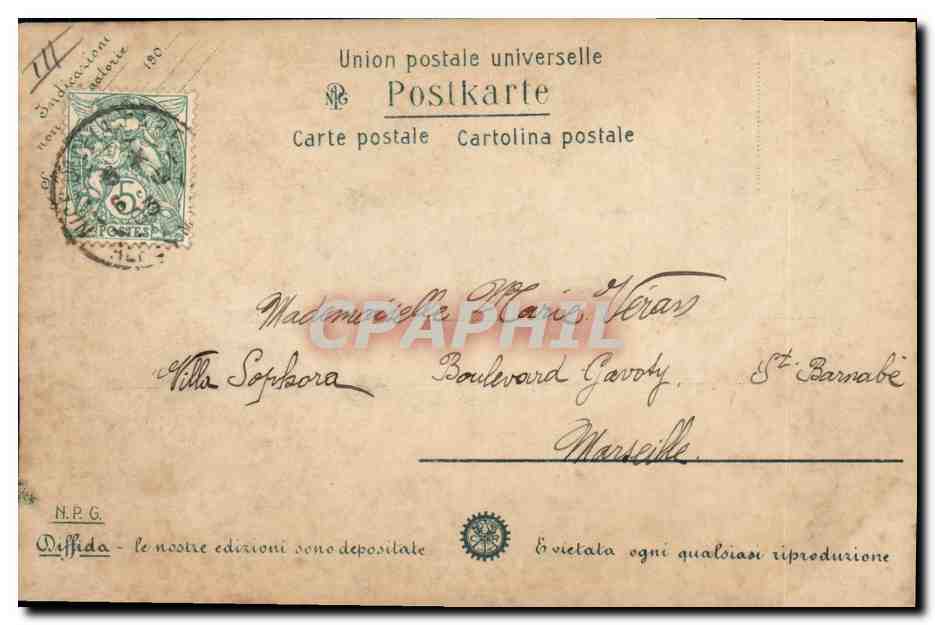 111
Indicazioni
non
190
Union postale universelle
NPG Postkarte
Carte postale Cartolina postale
5c
POSTES
CPAPHIL
Mademoiselle Marie Véran
Villa Sophora Boulevard Gavoty. St. Barnabé
Marseille.
N.P.G.
Diffida - le nostre edizioni sono depositate
È vietata ogni qualsiasi riproduzione